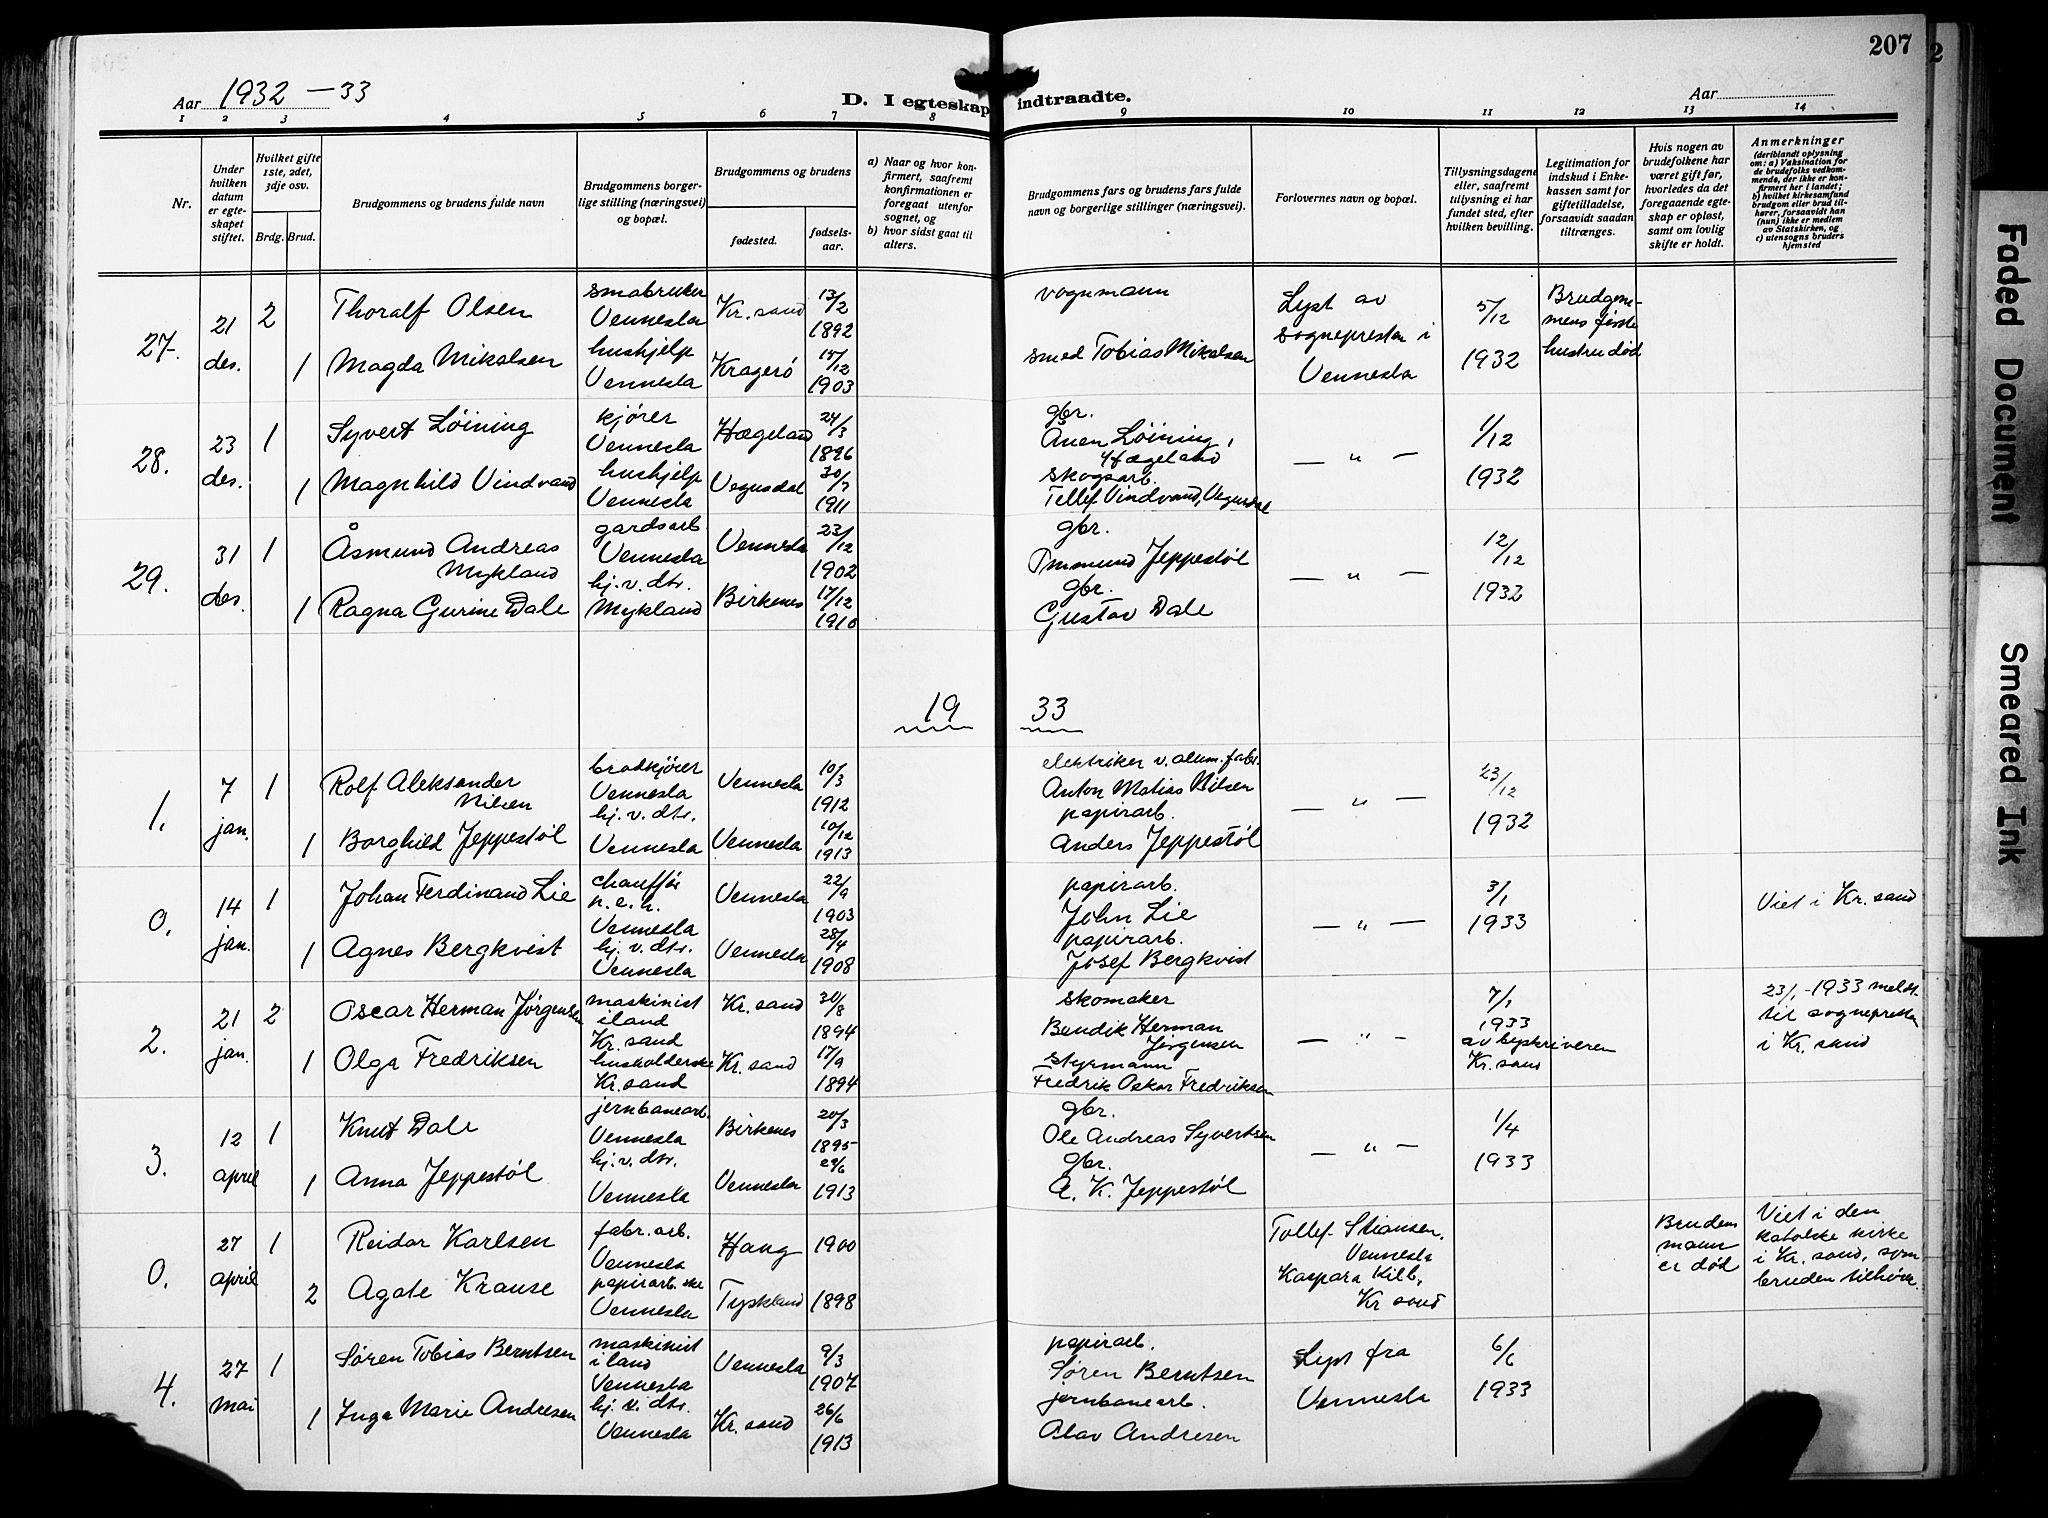 207
2
Aar 1932 – 33
D. I egteskap indtraadte.
Aar
1 2 3 4 5 6 7 8 9 10 11 12 13 14
Nr.
Under hvilken datum er egteskapet stiftet.
Hvilket gifte 1ste, 2det, 3dje osv.
Brdg. Brud.
Brudgommens og brudens fulde navn
Brudgommens borgerlige stilling (næringsvei) og bopæl.
Brudgommens og brudens
fødested.
fødselsaar.
a) Naar og hvor konfirmert, saafremt konfirmationen er foregaat utenfor sognet, og
b) hvor sidst gaat til alters.
Brudgommens fars og brudens fars fulde navn og borgerlige stillinger (næringsvei).
Forlovernes navn og bopæl.
Tillysningsdagene eller, saafremt tillysning ei har fundet sted, efter hvilken bevilling.
Legitimation for indskud i Enkekassen samt for giftetilladelse, forsaavidt saadan tiltrænges.
Hvis nogen av brudefolkene har været gift før, hvorledes da det foregaaende egteskap er opløst, samt om lovlig skifte er holdt.
Anmerkninger
(deriblandt oplysning om: a) Vaksination for de brudefolks vedkommende, der ikke er konfirmert her i landet; b) hvilket kirkesamfund brudgom eller brud tilhører, forsaavidt han (hun) ikke er medlem av Statskirken, og c) utensogns bruders hjemsted
27. 21 des. 2 Thoralf Olsen småbruker Vennesla Kr. sand 13/2 1892 vognmann
1 Magda Mikalsen hushjelp Vennesla Kragerö 15/12 1903 smed Tobias Mikalsen
Lyst av sognepresten i Vennesla 5/12 1932 Brudgommens første hustru död
28. 23 des. 1 Syvert Löining kjörer Vennesla Hægeland 24/3 1896 gbr. Ånen Löining, Hægeland
1 Magnhild Vindvand hushjelp Vennesla Vegusdal 30/7 1911 skogsarb. Tellef Vindvand, Vegusdal
— „ — 1/12 1932
29. 31 des. 1 Åsmund Andreas Mykland gardsarb. Vennesla Vennesla 23/12 1902 gbr. Jeppestöl
1 Ragna Gurine Dale hj. v. dtr. Mykland Birkenes 17/12 1910 gbr. Gustav Dale
— „ — 12/12 1932
19 33
1. 7 jan. 1 Rolf Aleksander Nilsen brödkjörer Vennesla Vennesla 10/3 1912 elektriker v. alum. fabr. Anton Matias Nilsen
1 Borghild Jeppestöl hj. v. dtr. Vennesla Vennesla 10/12 1913 papirarb. Anders Jeppestöl
— „ — 23/12 1932
0. 14 jan. 1 Johan Ferdinand Lie chaufför Vennesla Vennesla 22/9 1903 papirarb. John Lie
1 Agnes Bergkvist hj. v. dtr. Vennesla Vennesla 28/4 1908 papirarb. Josef Bergkvist
— „ — 3/1 1933 Viet i Kr. sand
2. 21 jan. 2 Oscar Herman Jörgensen maskinist iland Kr. sand Kr. sand 30/8 1894 skomaker Bendik Herman Jörgensen
1 Olga Fredriksen husholderske Kr. sand Kr. sand 17/9 1894 styrmann Fredrik Oskar Fredriksen
— „ — 7/1 1933 av byskriveren Kr. sand 23/1 - 1933 meldt til sognepresten i Kr. sand
3. 12 april 1 Knut Dale jernbanearb. Vennesla Birkenes 20/3 1895 gbr. Ole Andreas Syvertsen
1 Anna Jeppestöl hj. v. dtr. Vennesla Vennesla 29/6 1913 gbr. A. K. Jeppestöl
— „ — 1/4 1933
0. 27 april 1 Reidar Karlsen fabr. arb. Vennesla Haag 1900
2 Agate Krause papirarb.ske Vennesla Tyskland 1898
Tellef Stiansen, Vennesla Kaspara Kilb, Kr sand Brudens mann er död Viet i den katolske kirke i Kr. sand, som bruden tilhörer.
4. 27 mai 1 Sören Tobias Berntsen maskinist i land Vennesla Vennesla 9/3 1907 papirarb. Sören Berntsen
1 Inga Marie Andresen hj. v. dtr. Vennesla Kr. sand 26/6 1913 jernbanearb. Olav Andresen
Lyst fra Vennesla 6/6 1933
Faded Document
Smeared Ink